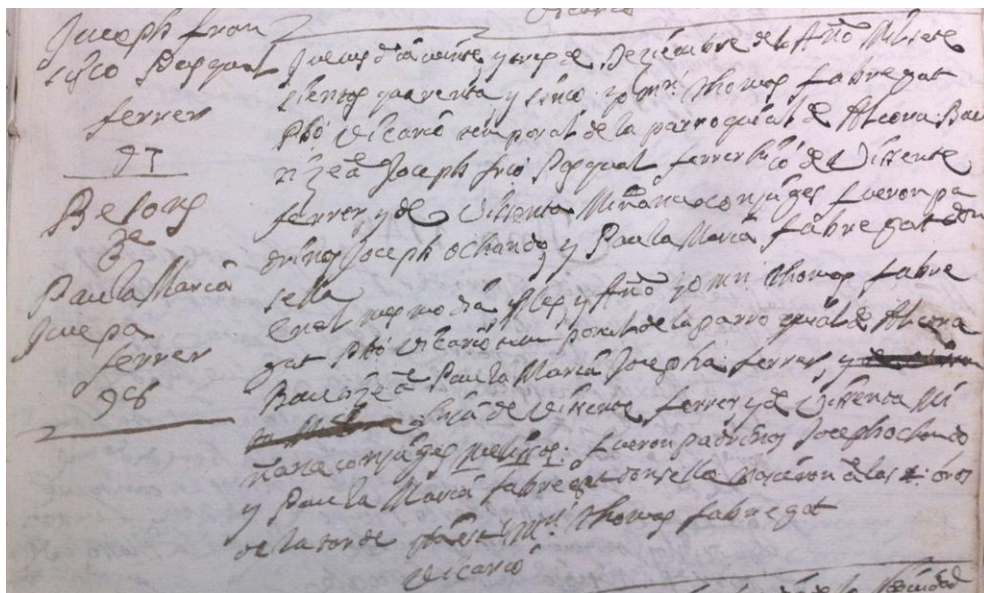 Vicario
Juseph fran
sisco Pasqual
ferrer
97
Besons
de
Paula Maria
Jusepa
ferrer
98
Jueves dia veinte y tres de Deziembre de lo Año Mil sete
sientos quarenta y sinco yo mn. Thomas Fabregat
Pbo Vicario temporal de la parroquial de Alcora Bau
tize a Joseph frco Pasqual ferrer hijo de Vissente
ferrer y de Vissenta Miñana conjuges fueron pa
drinos Joseph ochando y Paula Maria fabregat don
sella
En el mesmo dia Mes y Año yo mn Thomas fabre
gat Pbo Vicario temporal de la parroquial de Alcora
Bautize a Paula Maria Josepha ferrer, y
hija de Vissente ferrer y de Vissenta Mi
ñana conjuges fueron padrinos Joseph ochando
y Paula Maria fabregat donsella nasieron a las oras
de la tarde Mn. Thomas fabregat
Vicario